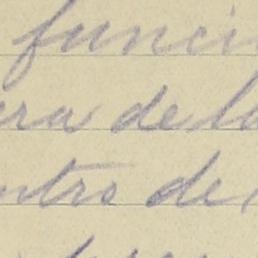 funci
ra de lo
ntro de